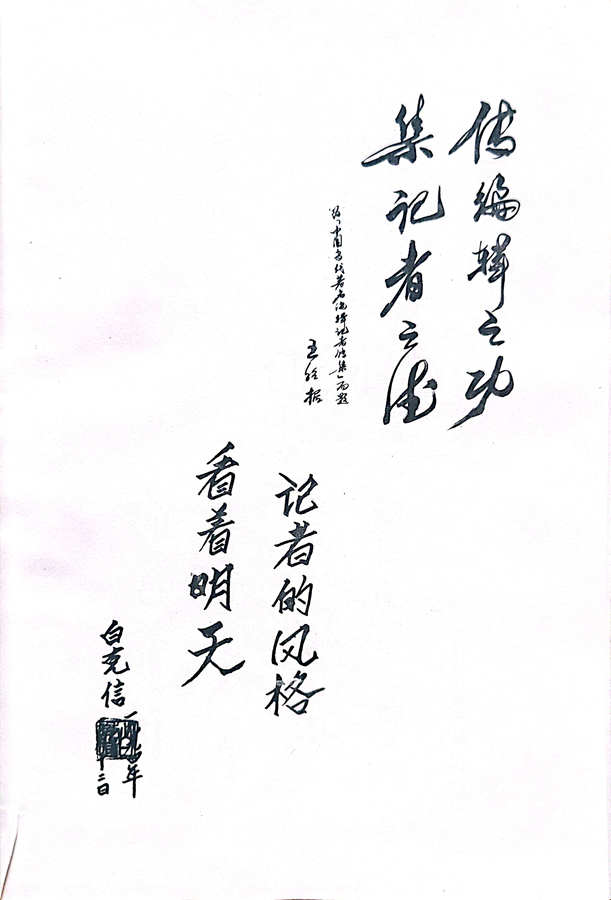 传编辑之功
集记者之德
为《中国当代著名编辑记者传集》而题
王
记者的风格
看着明天
白克信
年
二日